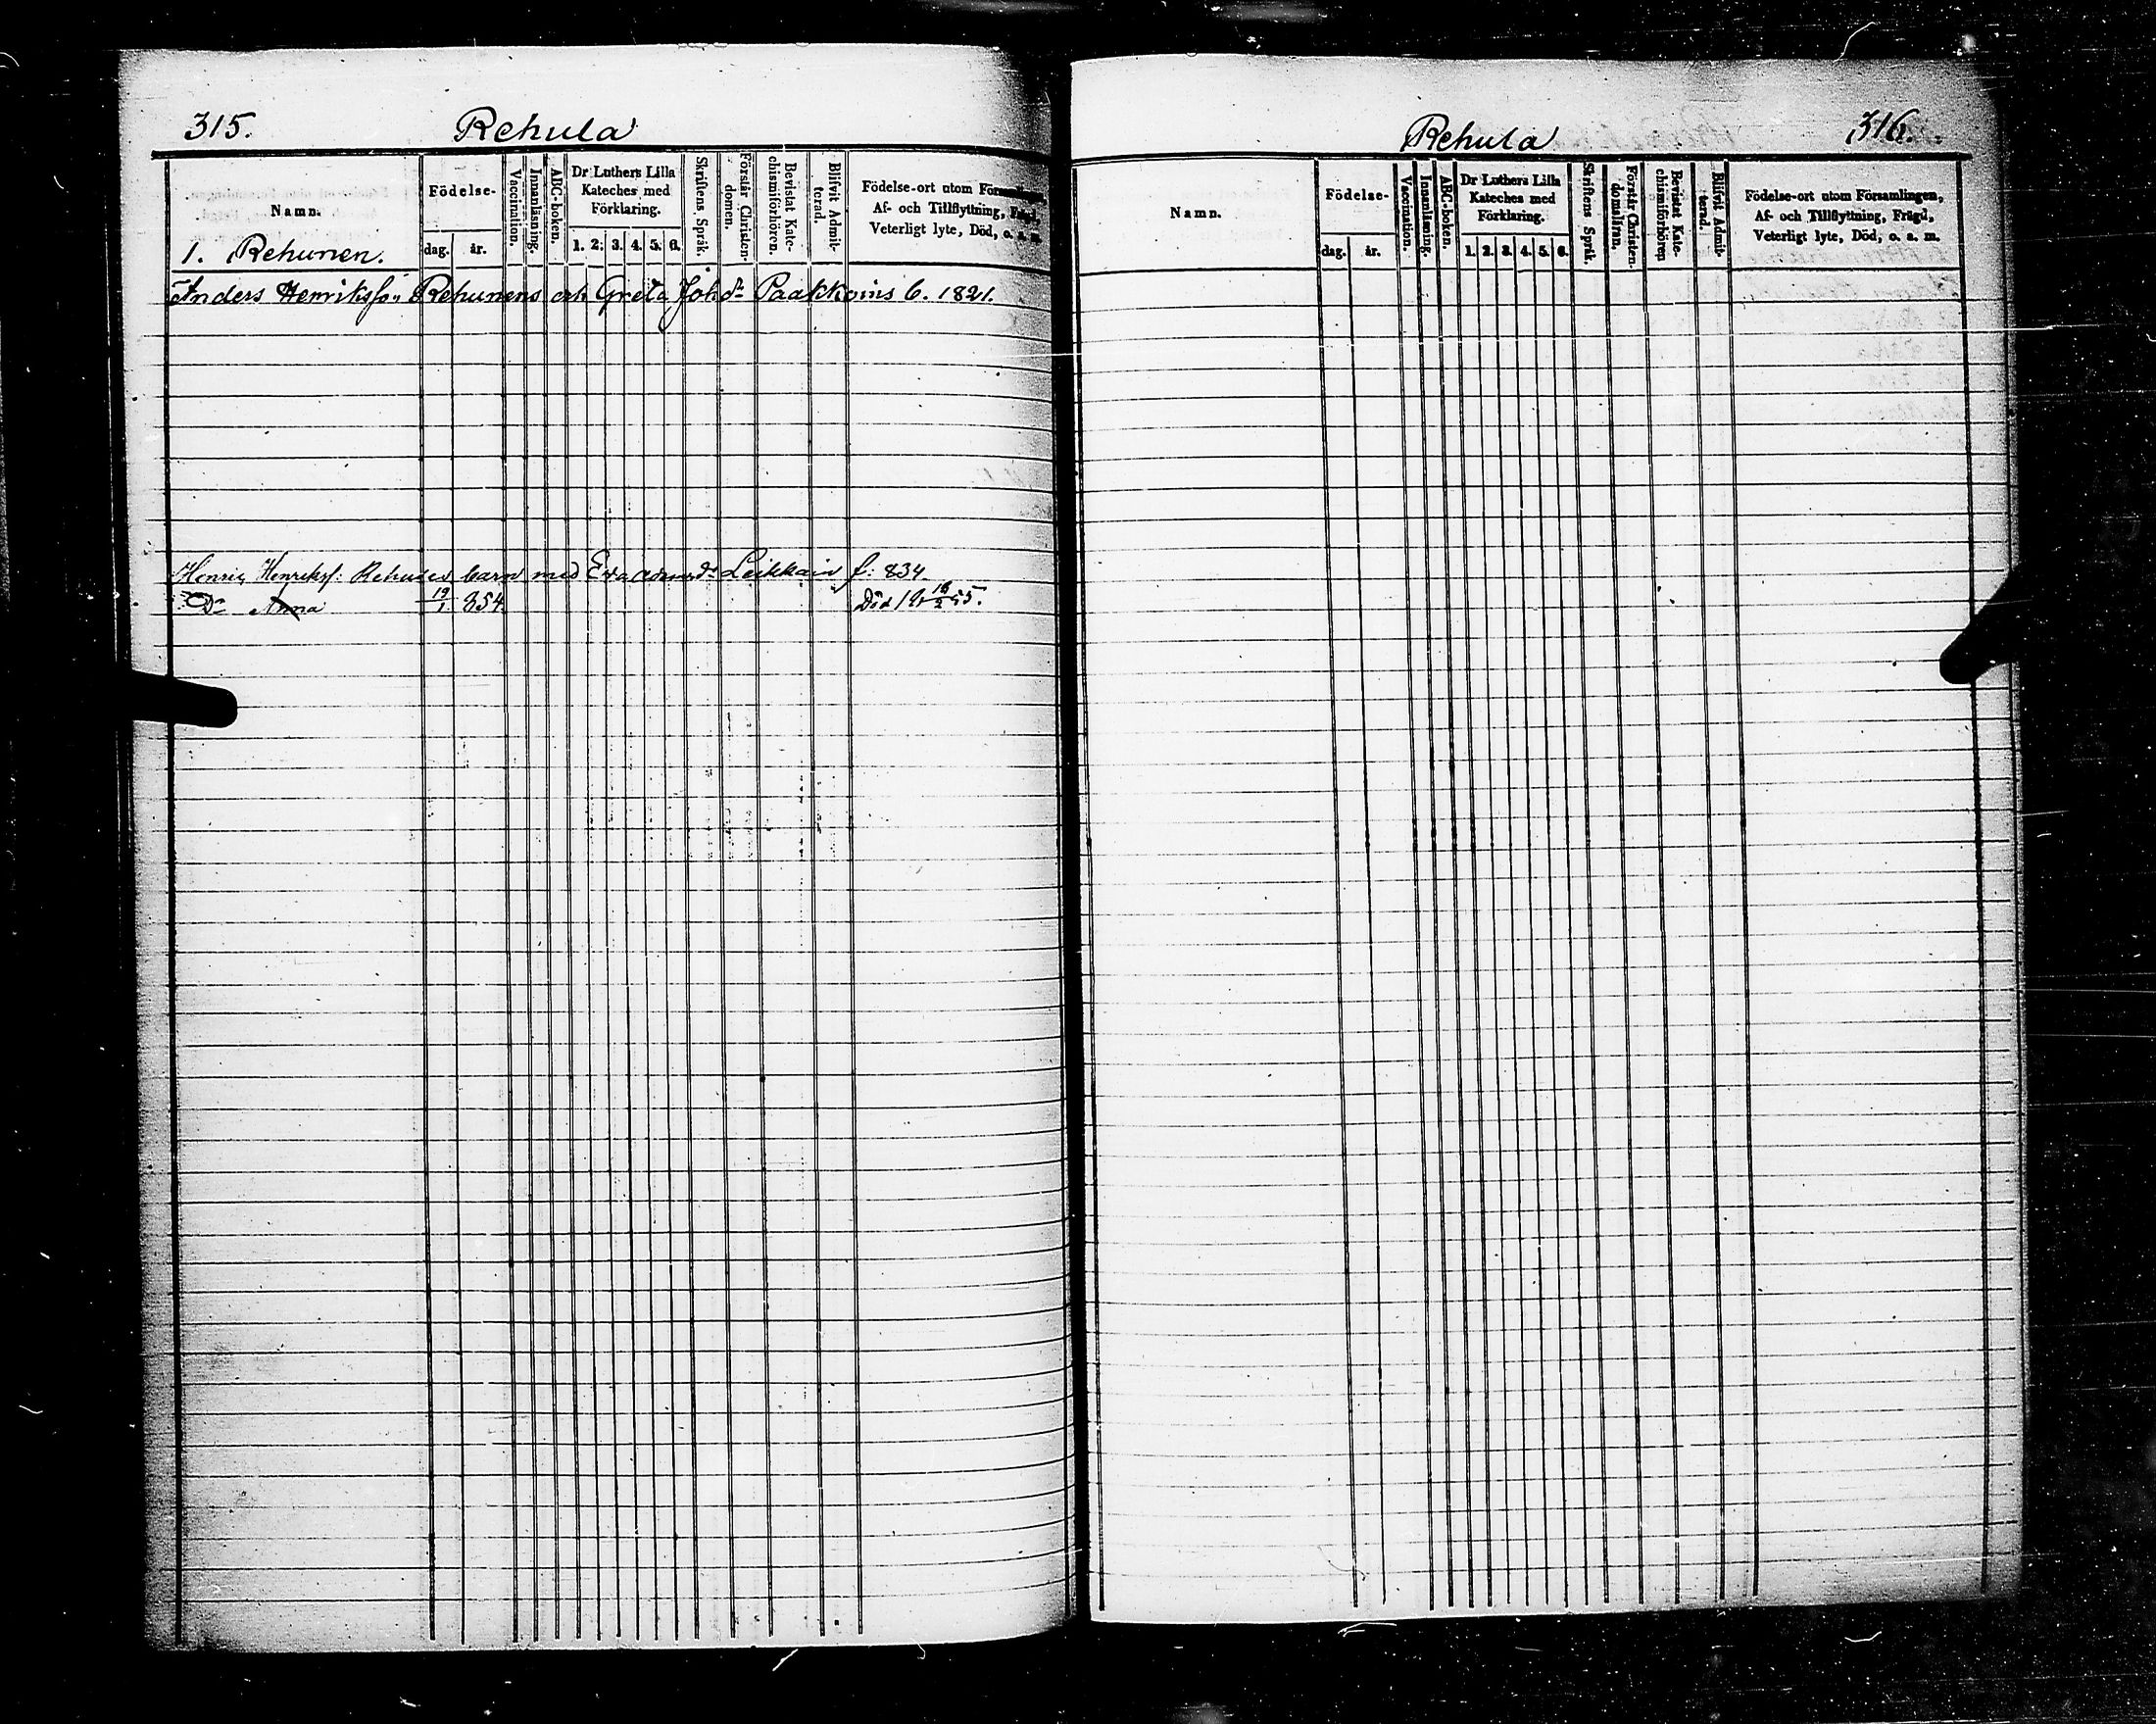 315.
Rehula
Namn.
Födelse-
dag.
år.
Vaccination.
Innanläsning.
ABC-boken.
Dr Luthers Lilla
Kateches med
Förklaring.
1. 2. 3. 4. 5. 6.
Skriftens Språk.
Förstår Christen-
domen.
Bevistat Kate-
chismiförhören.
Blifvit Admit-
terad.
Födelse-ort utom Församlingen,
Af- och Tillflyttning, Frägd,
Veterligt lyte, Död, o. a. m.
1. Rehunen.
Anders Henrikss. Rehunens och Greta Joh. dr Paakkoins b. 1821.
Henric Henrikss: Rehuses barn med Eva Leikkain f: 834.
Dr Anna 19/1 854. Död 18/2 55.
Rehula
316.
Namn.
Födelse-
dag.
år.
Vaccination.
Innanläsning.
ABC-boken.
Dr Luthers Lilla
Kateches med
Förklaring.
1. 2. 3. 4. 5. 6.
Skriftens Språk.
Förstår Christen-
domsläran.
Bevistat Kate-
chismiförhören
Blifvit Admit-
terad.
Födelse-ort utom Församlingen,
Af- och Tillflyttning, Frägd,
Veterligt lyte, Död, o. a. m.